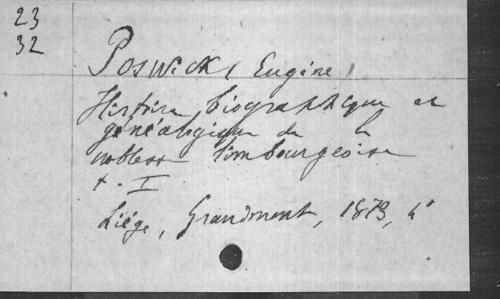 23
32
Poswick (Eugène)
Histoire biographique et
généalogique de la
noblesse limbourgeoise
t. I
Liége, Grandmont, 1873, 4°